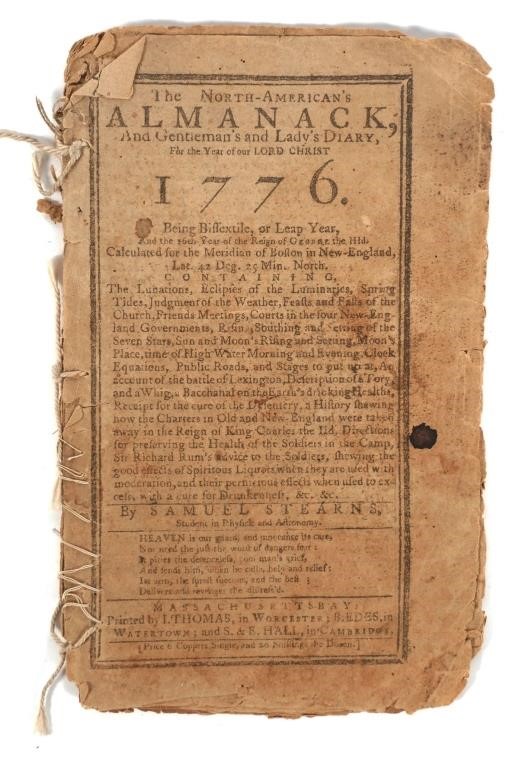 The NORTH-AMERICAN'S
ALMANACK,
And Gentleman's and Lady's DIARY,
For the Year of our LORD CHRIST
1776.
Being Biſſextile, or Leap Year,
And the 16th Year of the Reign of GEORGE the IIId.
Calculated for the Meridian of Boſton in New-England,
Lat. 42 Deg. 25 Min. North.
CONTAINING,
The Lunations, Eclipſes of the Luminaries, Spring
Tides, Judgment of the Weather, Feaſts and Faſts of the
Church, Friends Meetings, Courts in the four New-Eng-
land Governments, Riſing, Southing and Setting of the
Seven Stars, Sun and Moon's Riſing and Setting, Moon's
Place, time of High Water Morning and Evening, Clock
Equations, Public Roads, and Stages to put up at, An
account of the battle of Lexington, Deſcription of a Tory
and a Whig, a Bacchanal on the Earth's drinking Healths,
Receipt for the cure of the Dyſentery, a Hiſtory ſhewing
how the Charters in Old and New-England were taken
away in the Reign of King Charles the IId, Directions
for preſerving the Health of the Soldiers in the Camp,
Sir Richard Rum's advice to the Soldiers, ſhewing the
good effects of Spiritous Liquors when they are uſed with
moderation, and their pernicious effects when uſed to ex-
ceſs, with a cure for Drunkenneſs, &c. &c.
By SAMUEL STEARNS,
Student in Phyſick and Aſtronomy.
HEAVEN is our guard, and innocence its care,
Nor need the juſt the worſt of dangers fear:
It pities the defenceleſs, poor man's grief,
And ſends him, when he calls, help and relief:
Its arm, the ſureſt ſuccour, and the beſt;
Delivers and revenges the diſtreſs'd.
MASSACHUSETTS BAY:
Printed by I. THOMAS, in WORCESTER; B. EDES, in
WATERTOWN; and S. & E. HALL, in CAMBRIDGE.
[Price 6 Coppers Single, and 20 Shillings the Dozen.]